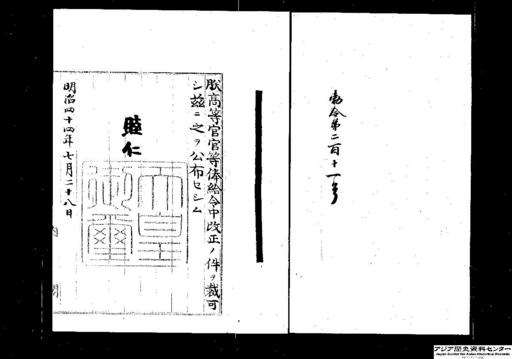 勅令第二百十一号
朕高等官官等俸給令中改正ノ件ヲ裁可
シ茲ニ之ヲ公布セシム
睦仁
天皇
御璽
明治四十四年七月二十八日
内閣
アジア歴史資料センター
Japan Center for Asian Historical Records